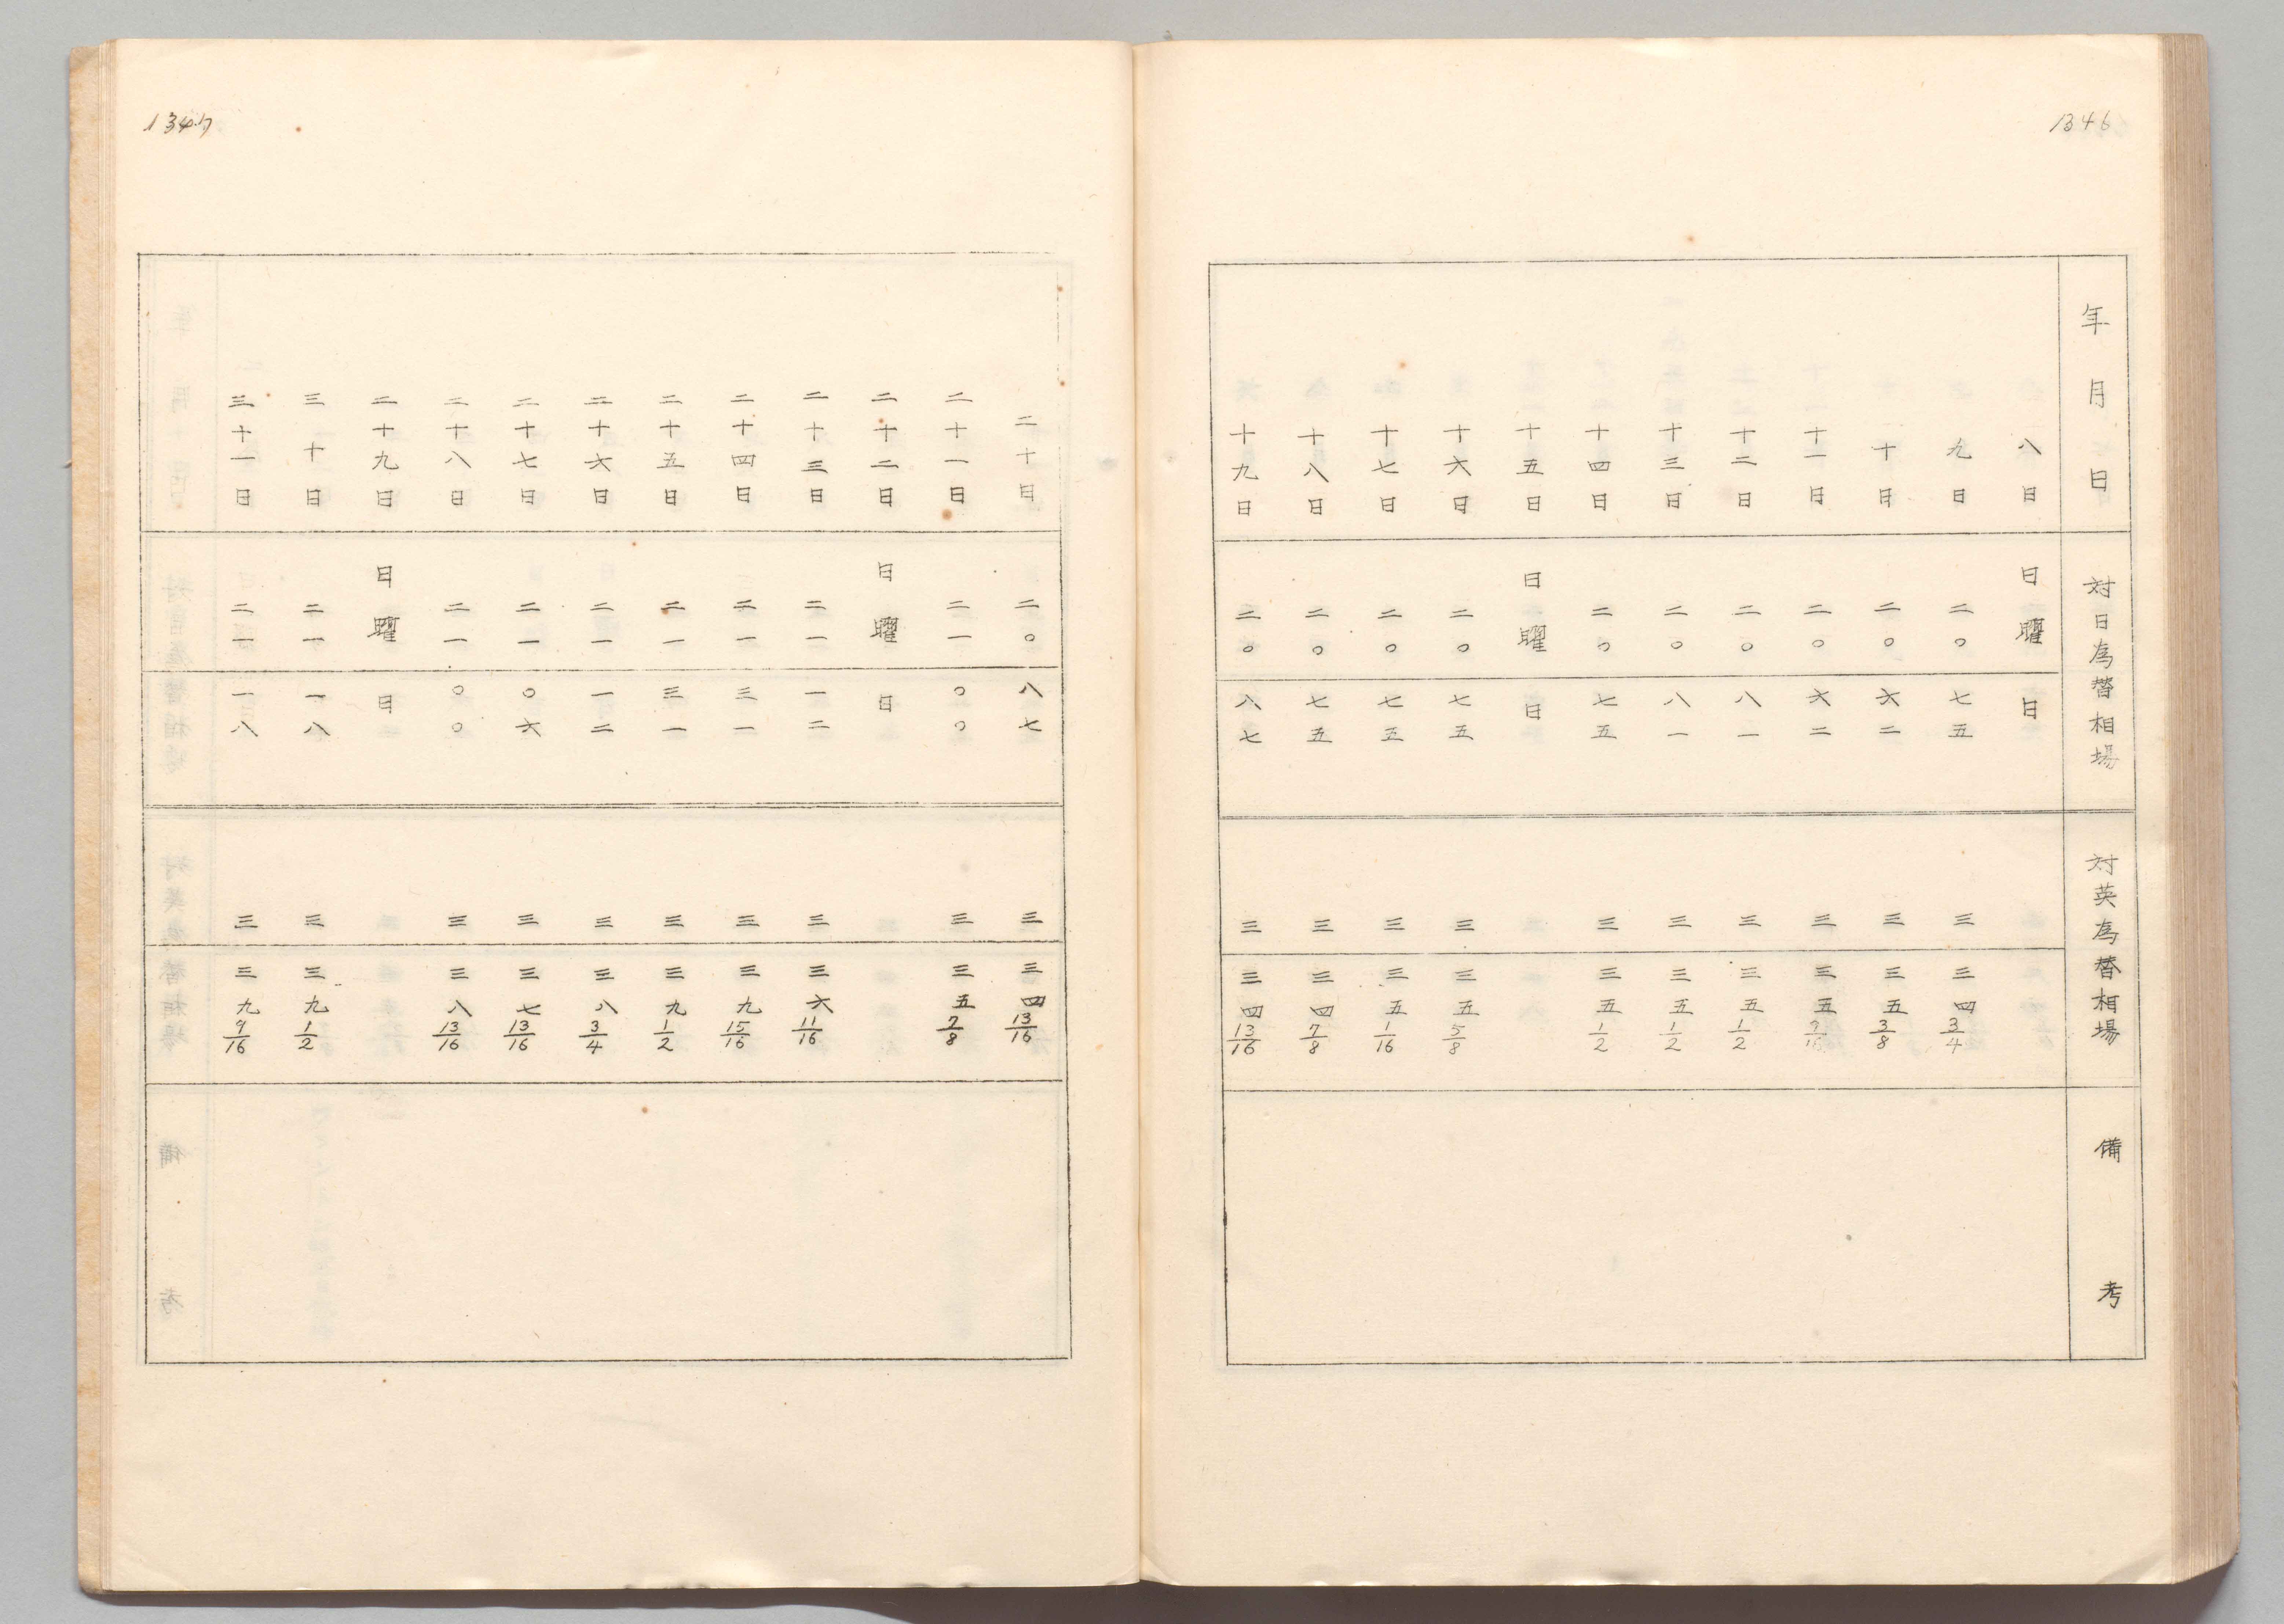 1346
年月日 対日為替相場 対英為替相場 備考
八日 日曜日
九日 二〇 七五 三 三四 3/4
十日 二〇 六二 三 三五 3/8
十一日 二〇 六二 三 三五
十二日 二〇 八一 三 三五 1/2
十三日 二〇 八一 三 三五 1/2
十四日 二〇 七五 三 三五 1/2
十五日 日曜日
十六日 二〇 七五 三 三五 5/8
十七日 二〇 七五 三 三五 1/16
十八日 二〇 七五 三 三四 7/8
十九日 二〇 八七 三 三四 13/16
1347
二十日 二〇 八七 三 三四 13/16
二十一日 二一 〇〇 三 三五 7/8
二十二日 日曜日
二十三日 二一 一二 三 三六 11/16
二十四日 二一 三一 三 三九 15/16
二十五日 二一 三一 三 三九 1/2
二十六日 二一 一二 三 三八 3/4
二十七日 二一 〇六 三 三七 13/16
二十八日 二一 〇〇 三 三八 13/16
二十九日 日曜日
三十日 二一 一八 三 三九 1/2
三十一日 二一 一八 三 三九 9/16